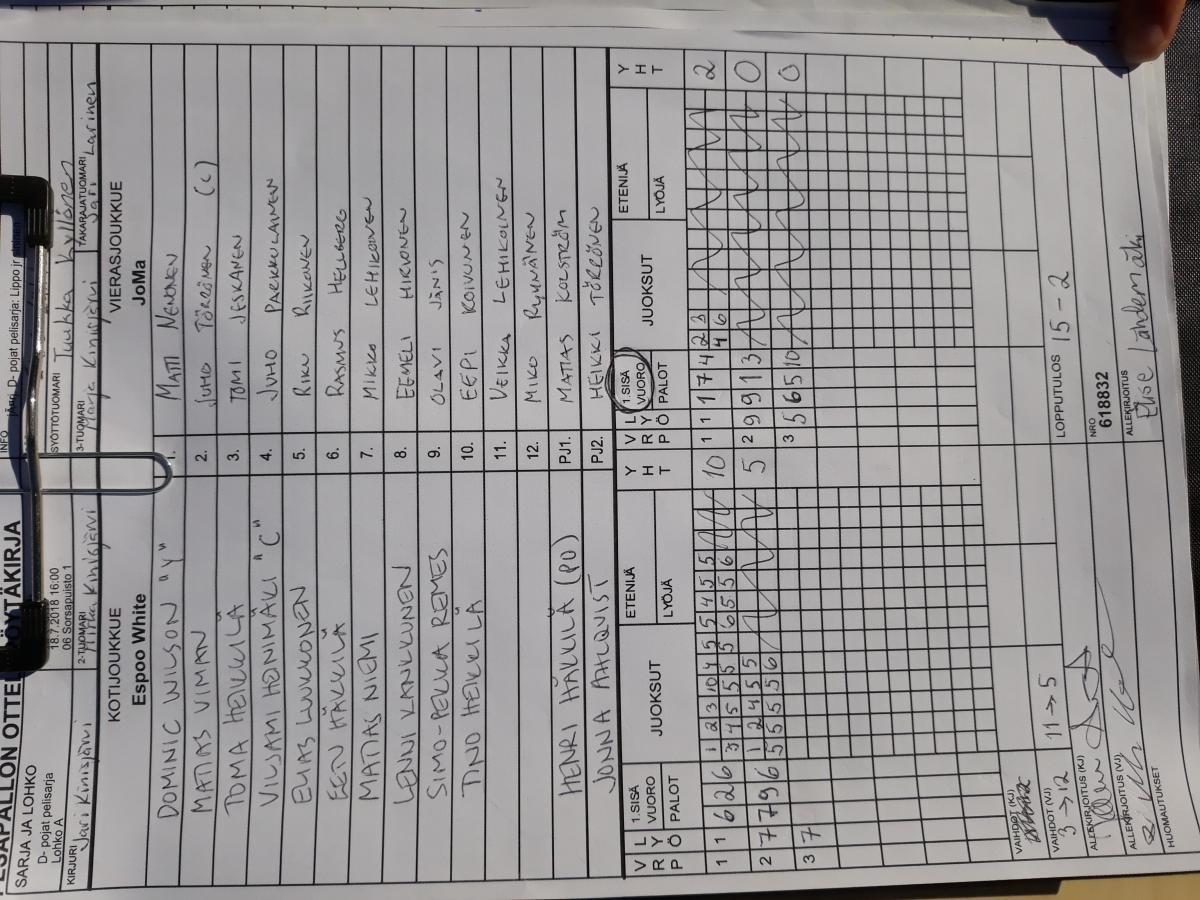 PESÄPALLON OTTELUPÖYTÄKIRJA
SARJA JA LOHKO
D- pojat pelisarja
Lohko A
18.7.2018 16:00
06 Sorsapuisto 1
INFO
D- pojat pelisarja: Lippo jr
KIRJURI Jari Kinisjärvi
2-TUOMARI Kinisjärvi
SYÖTTÖTUOMARI Tuukka Kyllönen
3-TUOMARI Marja Kinisjärvi
TAKARAJATUOMARI Jari Larinen
KOTIJOUKKUE
Espoo White
VIERASJOUKKUE
JoMa
DOMINIC WILSON "Y" 1. MATTI NENONEN
MATIAS VIMAN 2. JUHO TÖRRÖNEN (C)
TOMA HEIKKILÄ 3. TOMI JESKANEN
VILJAMI HONIMÄLI "C" 4. JUHO PARKKULAINEN
ELIAS LUKKONEN 5. RIKU RIIKONEN
EEN HÄKKILÄ 6. RASMUS HELLBERG
MATIAS NIEMI 7. MIKKO LEHIKOINEN
LENNI KANKKUNEN 8. EEMELI HIRVONEN
SIMO-PEKKA REMES 9. OLAVI JÄNIS
TINO HEIKKILÄ 10. EEPI KOIVUNEN
11. VEIKKA LEHIKOINEN
12. MIKO RYYNÄNEN
HENRI HÄKKILÄ (PO) PJ1. MATIAS KOLSTRÖM
JONNA AHLQVIST PJ2. HEIKKI TÖRRÖNEN
VRP LYÖ 1.SISÄVUORO PALOT JUOKSUT ETENIJÄ LYÖJÄ YHT
VRP LYÖ 1.SISÄVUORO PALOT JUOKSUT ETENIJÄ LYÖJÄ YHT
1 1 6 2 6 1 2 3 10 4 5 5 4 5 5 10
3 4 5 5 5 5 6 5 5 6
1 1 1 7 4 2 3 2
4 6
2 7 7 9 6 1 2 4 5 5 5
5 5 5 5 6
2 9 9 1 3 0
3 7
3 5 6 5 10 0
VAIHDOT (KJ)
VAIHDOT (VJ)
3 → 12 11 → 5
LOPPUTULOS 15 - 2
ALLEKIRJOITUS (KJ)
NRO
618832
ALLEKIRJOITUS (VJ)
ALLEKIRJOITUS
Lähdemäki
HUOMAUTUKSET